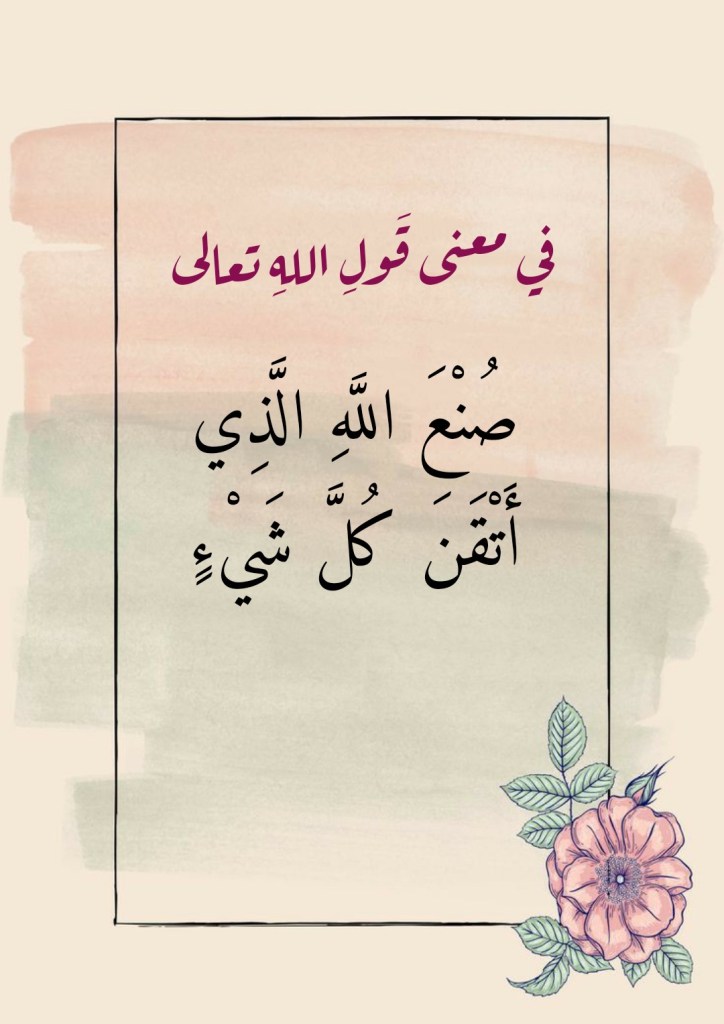 في معنى قَولِ اللهِ تعالى
صُنْعَ اللَّهِ الَّذِي
أَتْقَنَ كُلَّ شَيْءٍ